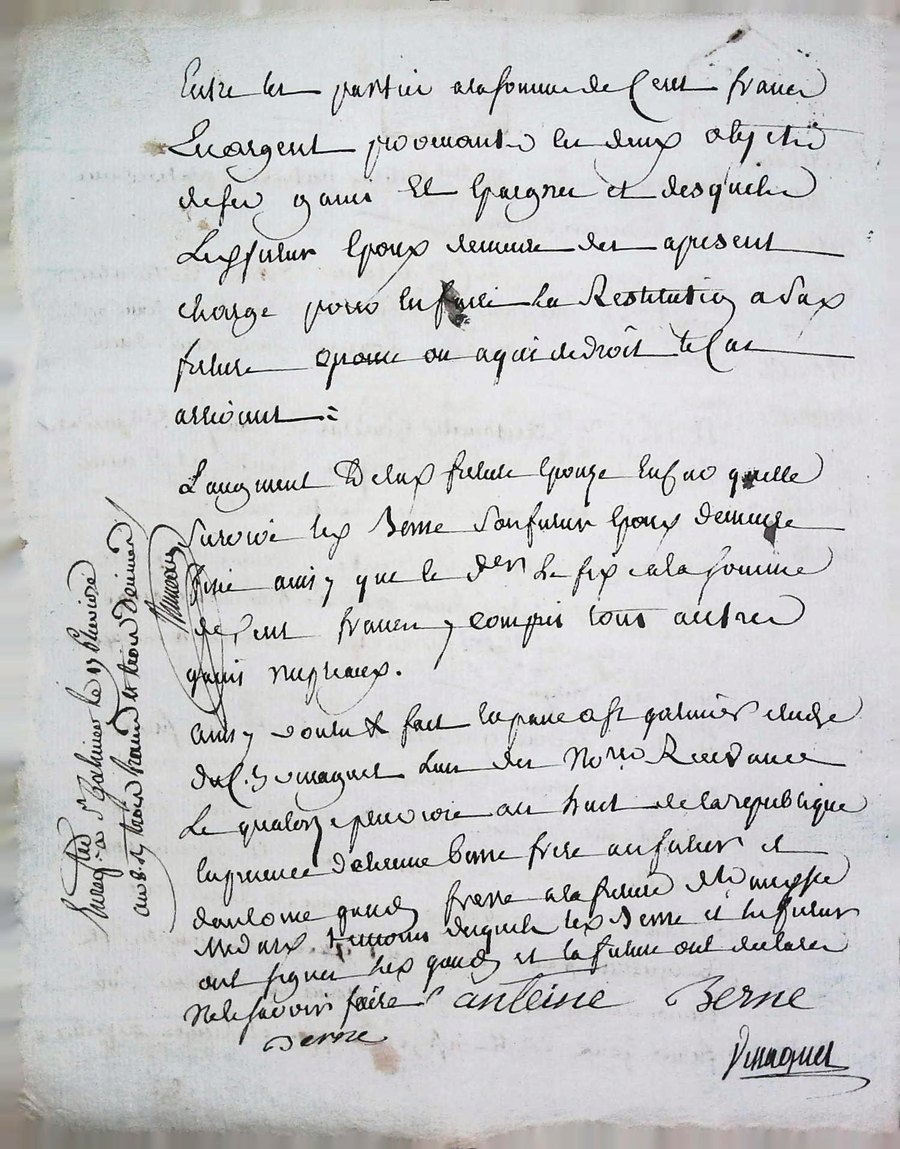 Entre les parties a la somme de Cent francs
En argent provenants les deux objects
de ses gains Et Epargnes et desquels
Led futur Epoux demeure des apresent
charge pour en faire La Restitution a sa
future epouse ou a qui de droit le Cas
arrivant =
L'augment De lad future Epouze En Cas quelle
survive led Berne son futur Epoux demeure
fixe ainsy que le der Le fix a la somme
de Cent francs y compris tous autres
gains nuptiaux.
ainsy voulu & fait En presence a St galmier Etude
du C. un des Nores Recevance
Le quatorze pluviose an huit de la republique
En presence d'etienne berne frere au futur et
d'antoine frere a la future
temoins desquels led Berne et le futur
ont signes led et la future ont declarer
ne le savoir faire antoine Berne
Berne
Enregtré a St Galmier le 17 pluviose
an 8. Rt trois francs trois decimes